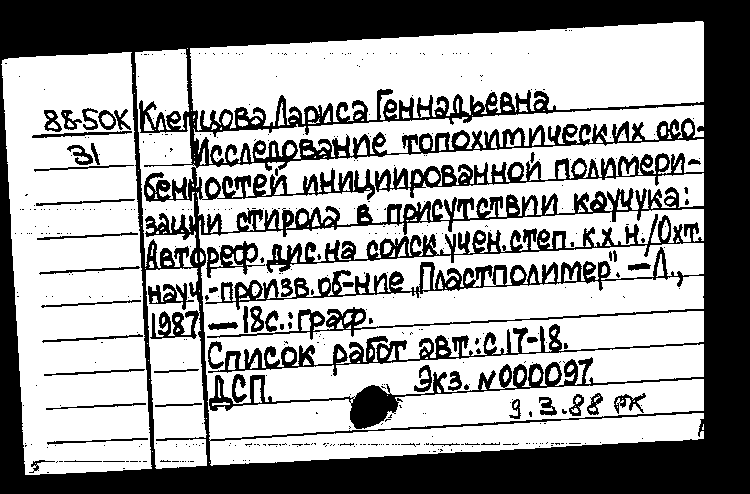 88-50К Клепцова, Лариса Геннадьевна.
31 Исследование топохимических осо-
бенностей инициированной полимери-
зации стирола в присутствии каучука:
Автореф. дис. на соиск. учен. степ. к.х.н./Охт.
науч.-произв. об-ние „Пластполимер". — Л.,
1987. — 18с.: граф.
Список работ авт.: с.17-18.
ДСП. Экз. №000097.
9.3.88 РК